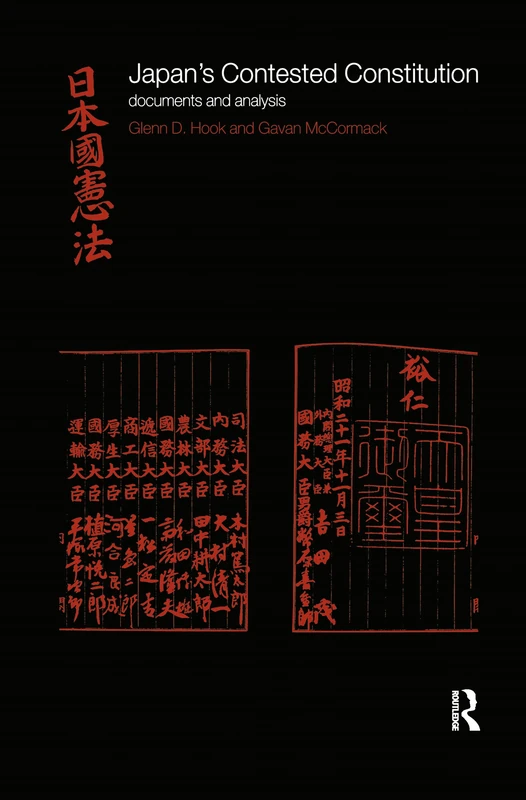 Japan's Contested Constitution
documents and analysis
Glenn D. Hook and Gavan McCormack
日本國憲法
裕仁
天皇
御璽
昭和二十一年十一月三日
内閣總理大臣兼
外務大臣
吉田茂
國務大臣 男爵 幣原喜重郎
司法大臣 木村篤太郎
内務大臣 大村清一
文部大臣 田中耕太郎
農林大臣 和田博雄
國務大臣 斎藤隆夫
遞信大臣 一松定吉
商工大臣 星島二郎
厚生大臣 河合良成
國務大臣 植原悦二郎
運輸大臣 平塚常次郎
ROUTLEDGE